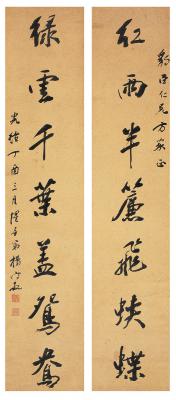 紅雨半簾飛蛺蝶
仁兄方家正
綠雲千葉蓋鴛鴦
光緒丁酉三月